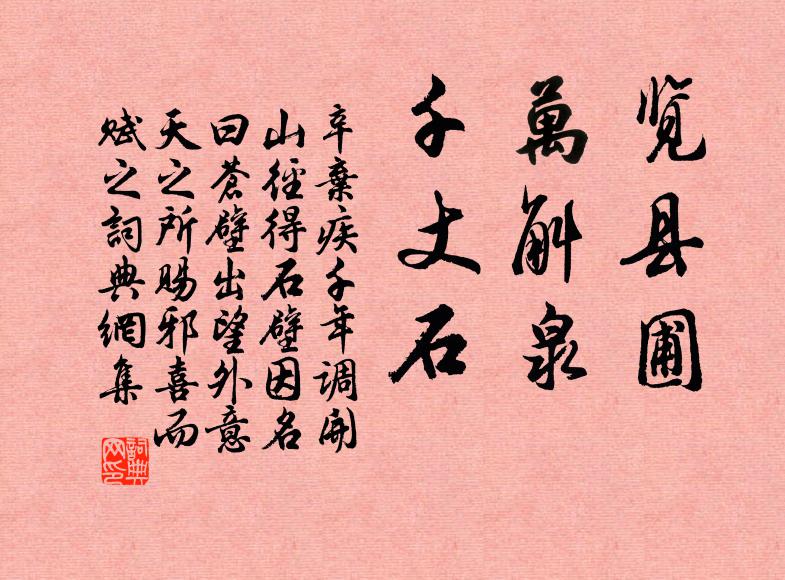 览县圃
萬斛泉
千丈石
辛棄疾千年调開
山徑得石壁因名
曰蒼壁出望外意
天之所賜邪喜而
赋之詞典網集
詞典
网印